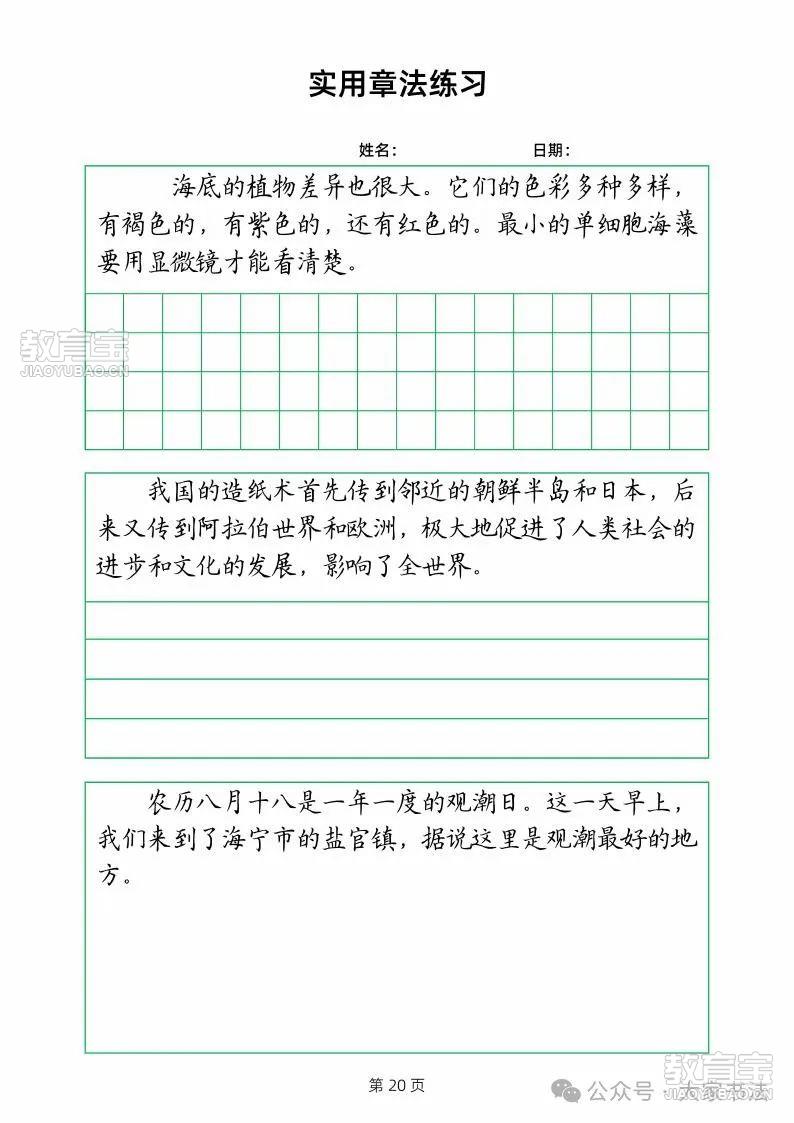 实用章法练习
姓名：
日期：
海底的植物差异也很大。它们的色彩多种多样，
有褐色的，有紫色的，还有红色的。最小的单细胞海藻
要用显微镜才能看清楚。
教育宝
JIAOYUBAO.CN
我国的造纸术首先传到邻近的朝鲜半岛和日本，后
来又传到阿拉伯世界和欧洲，极大地促进了人类社会的
进步和文化的发展，影响了全世界。
农历八月十八是一年一度的观潮日。这一天早上，
我们来到了海宁市的盐官镇，据说这里是观潮最好的地
方。
第 20 页
教育宝
JIAOYUBAO.CN
公众号 · 大家书法